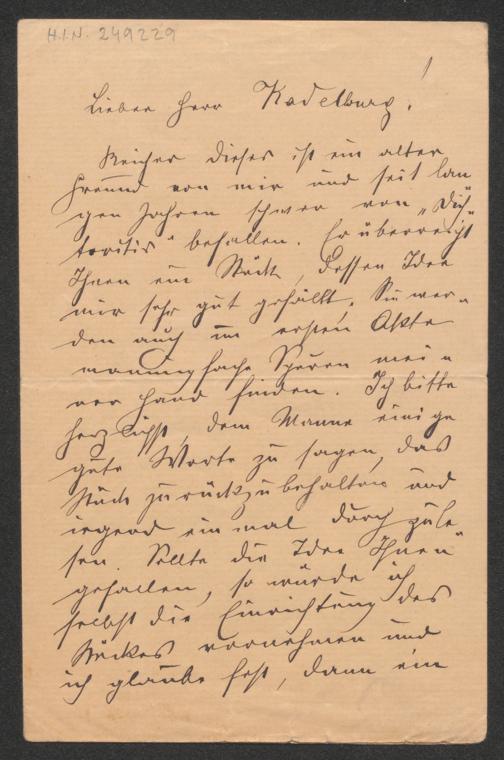 H.I.N. 249229
1
Lieber Herr Kadelburg!
Reicher dieses ist ein alter
Freund von mir und seit lan
gen Jahren schwer von „Dich-
teritis" befallen. Er überreicht
Ihnen ein Stück, dessen Idee
mir sehr gut gefällt. Sie wer-
den auch im ersten Akte
mannigfache Spuren mei-
ner Hand finden. Ich bitte
herzlichst, dem Manne einige
gute Worte zu sagen, das
Stück zurückzubehalten und
irgend einmal durchzule-
sen. Sollte die Idee Ihnen
gefallen, so würde ich
selbst die Einrichtung des
Stückes vornehmen und
ich glaube fest, dann ein